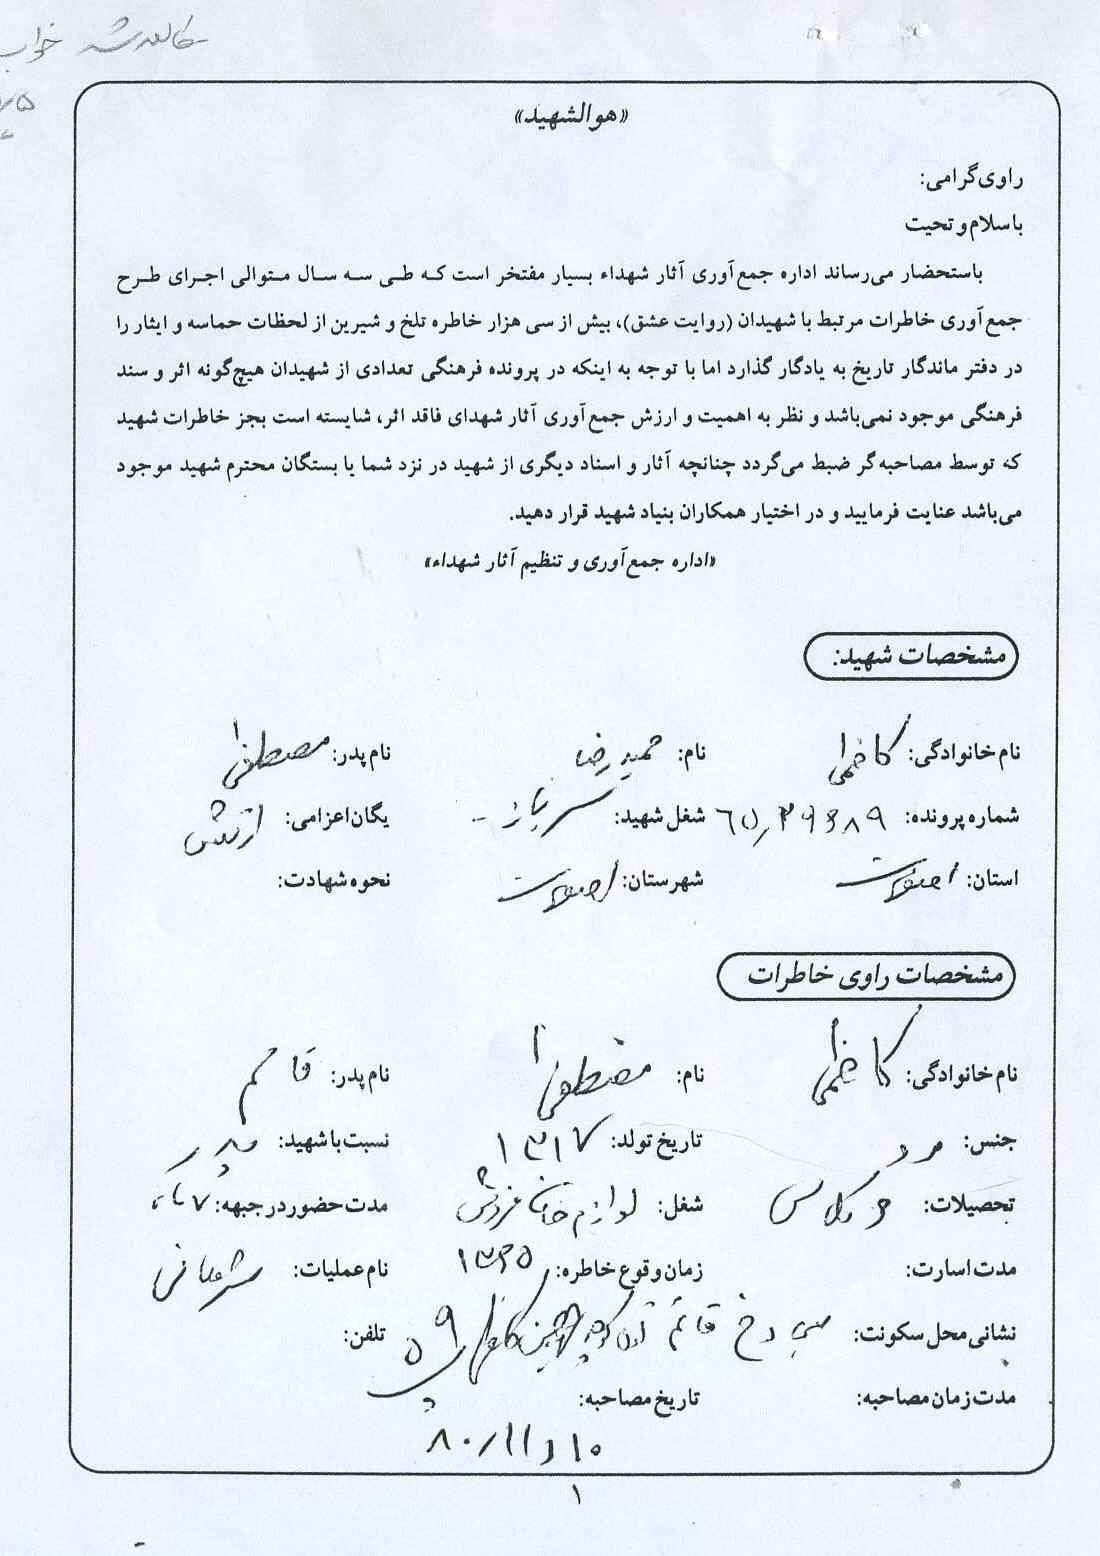 مطالعه شد خواب
«هوالشهید»
راوی گرامی:
باسلام و تحیت
باستحضار می‌رساند اداره جمع‌آوری آثار شهداء بسیار مفتخر است که طی سه سال متوالی اجرای طرح
جمع‌آوری خاطرات مرتبط با شهیدان (روایت عشق)، بیش از سی هزار خاطره تلخ و شیرین از لحظات حماسه و ایثار را
در دفتر ماندگار تاریخ به یادگار گذارد اما با توجه به اینکه در پرونده فرهنگی تعدادی از شهیدان هیچ‌گونه اثر و سند
فرهنگی موجود نمی‌باشد و نظر به اهمیت و ارزش جمع‌آوری آثار شهدای فاقد اثر، شایسته است بجز خاطرات شهید
که توسط مصاحبه‌گر ضبط می‌گردد چنانچه آثار و اسناد دیگری از شهید در نزد شما یا بستگان محترم شهید موجود
می‌باشد عنایت فرمایید و در اختیار همکاران بنیاد شهید قرار دهید.
«اداره جمع‌آوری و تنظیم آثار شهداء»
مشخصات شهید:
نام خانوادگی: کاظمی نام: حمیدرضا نام پدر: مصطفی
شماره پرونده: شغل شهید: سرباز یگان اعزامی: ارتش
استان: اصفهان شهرستان: اصفهان نحوه شهادت:
مشخصات راوی خاطرات
نام خانوادگی: کاظمی نام: مصطفی نام پدر: قاسم
جنس: مرد تاریخ تولد: ۱۳۱۷ نسبت با شهید: پدر
تحصیلات: شغل: لوازم خانه فروش مدت حضور در جبهه: ۷ ماه
مدت اسارت: زمان وقوع خاطره: ۱۳۶۵ نام عملیات:
نشانی محل سکونت: قائم اول کوچه تلفن:
مدت زمان مصاحبه: تاریخ مصاحبه:
۸۰/۱۱/۱۰
۱